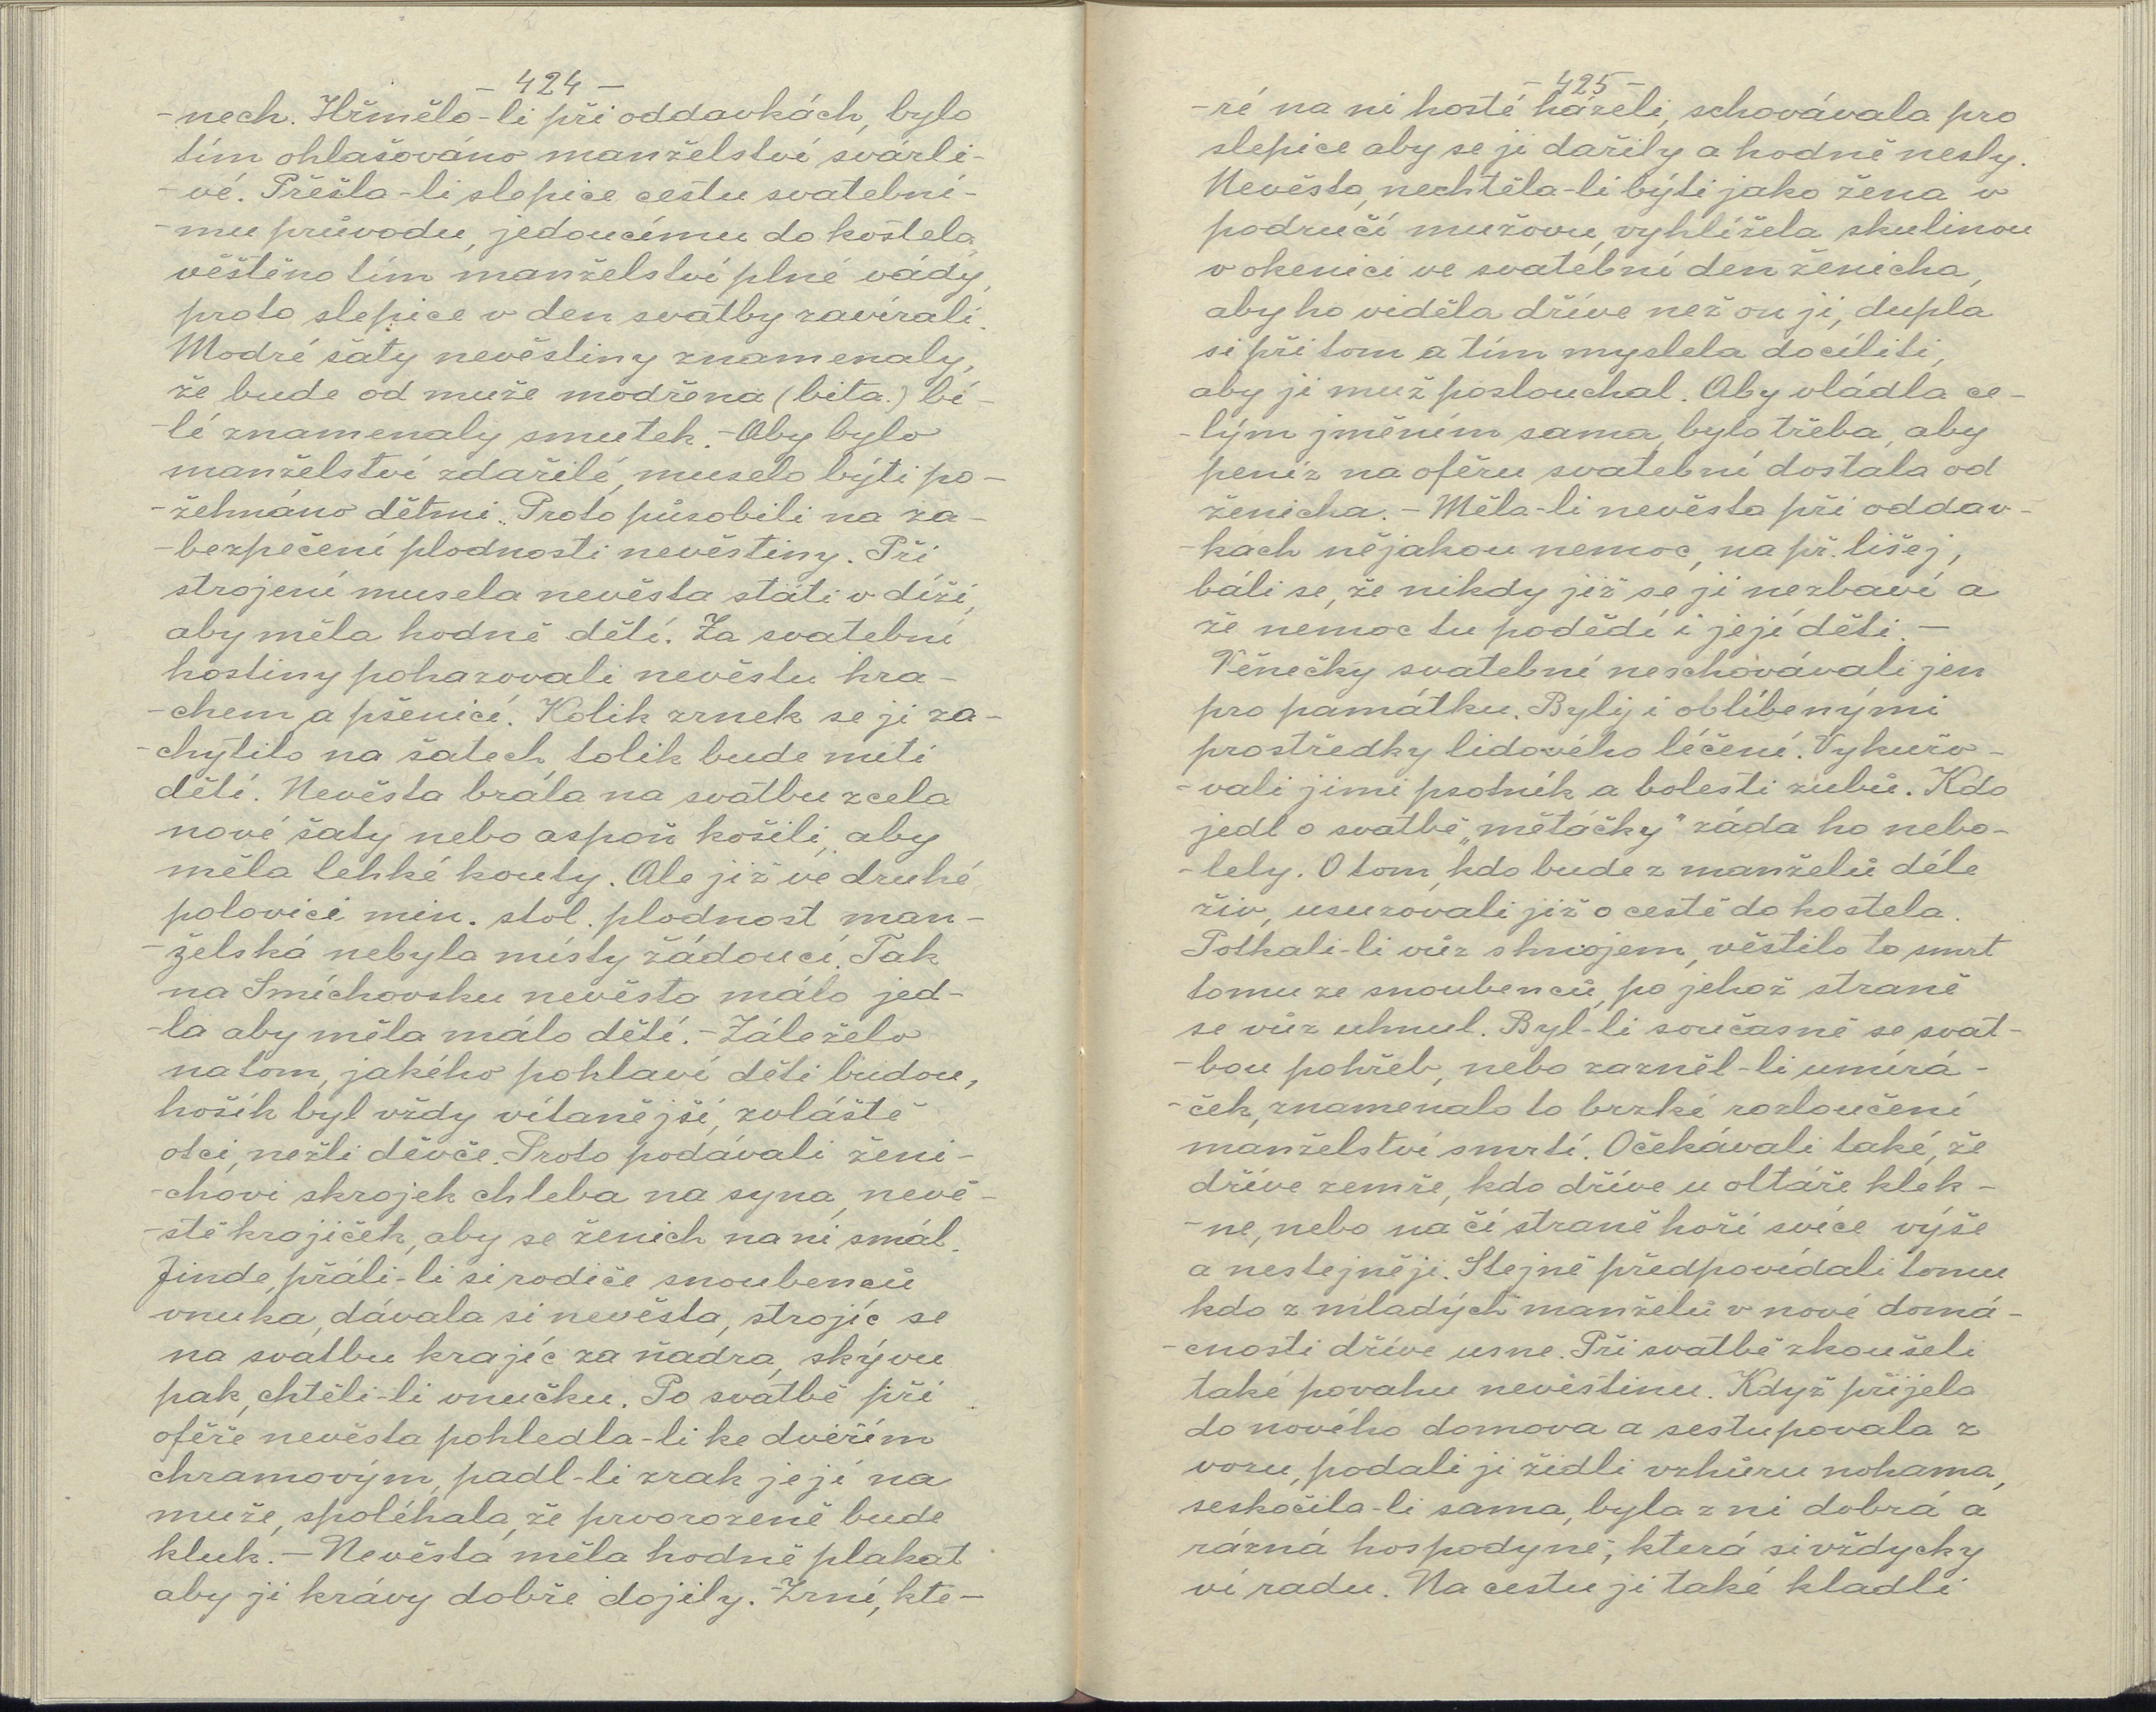 - 424 -
-nech. Hřmělo-li při oddavkách, bylo
tím ohlašováno manželství svárli-
-vé. Přešla-li slepice cestu svatební-
-mu průvodu, jedoucímu do kostela,
věštěno tím manželství plné vády,
proto slepice v den svatby zavírali.
Modré šaty nevěstiny znamenaly,
že bude od muže modřena (bita.) bí-
-lé znamenaly smutek. - Aby bylo
manželství zdařilé, muselo býti po-
-žehnáno dětmi. Proto působili na za-
-bezpečení plodnosti nevěstiny. Při
strojení musela nevěsta státi v díži,
aby měla hodně dětí. Za svatební
hostiny poházovali nevěstu hra-
-chem a pšenicí. Kolik zrnek se jí za-
-chytilo na šatech, tolik bude míti
dětí. Nevěsta brála na svatbu zcela
nové šaty nebo aspoň košili, aby
měla lehké kouty. Ale již ve druhé
polovici min. stol. plodnost man-
-želská nebyla místy žádoucí. Tak
na Smíchovsku nevěsta málo jed-
-la aby měla málo dětí. - Záleželo
na tom, jakého pohlaví děti budou,
hošík byl vždy vítanější, zvláště
otci, nežli děvče. Proto podávali ženi-
-chovi skrojek chleba na syna, nevě-
-stě krajíček, aby se ženich na ni smál.
Jinde, přáli-li si rodiče snoubenců
vnuka, dávala si nevěsta, strojíc se
na svatbu krajíc za ňadra, skývu
pak, chtěli-li vnučku. Po svatbě při
oféře nevěsta pohledla-li ke dveřím
chramovým, padl-li zrak její na
muže, spoléhala, že prvorozeně bude
kluk. - Nevěsta měla hodně plakat
aby ji krávy dobře dojily. - Zrní, kte-
- 425 -
-ré na ni hosté házeli, schovávala pro
slepice aby se jí dařily a hodně nesly.
Nevěsta, nechtěla-li býti jako žena v
područí mužovu, vyhlížela skulinou
v okenici ve svatební den ženicha,
aby ho viděla dříve než on ji, dupla
si při tom a tím myslela docíliti,
aby ji muž poslouchal. Aby vládla ce-
-lým jměním sama, bylo třeba, aby
peníz na oféru svatební dostala od
ženicha. - Měla-li nevěsta při oddav-
-kách nějakou nemoc, na př. lišej,
báli se, že nikdy již se jí nezbaví a
že nemoc tu podědí i její děti. -
Věnečky svatební neschovávali jen
pro památku. Byly i oblíbenými
prostředky lidového léčení. Vykuřo-
-vali jimi psotník a bolesti zubů. Kdo
jedl o svatbě „mětáčky" záda ho nebo-
-lely. O tom, kdo bude z manželů déle
živ, usuzovali již o cestě do kostela.
Potkali-li vůz s hnojem, věstilo to smrt
tomu ze snoubenců, po jehož straně
se vůz uhnul. Byl-li současně se svat-
-bou pohřeb, nebo zazněl-li umírá-
-ček, znamenalo to brzké rozloučení
manželství smrtí. Očekávali také, že
dříve zemře, kdo dříve u oltáře klek-
-ne, nebo na čí straně hoří svíce výše
a nestejněji. Stejně předpovídali tomu
kdo z mladých manželů v nové domá-
-cnosti dříve usne. Při svatbě zkoušeli
také povahu nevěstinu. Když přijela
do nového domova a sestupovala z
vozu, podali jí židli vzhůru nohama,
seskočila-li sama, byla z ní dobrá a
rázná hospodyně, která si vždycky
ví radu. Na cestu jí také kladli